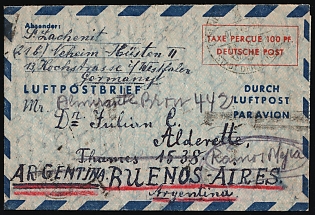 Absender:
(21b) Oeheim-Hüsten II
13 Hochstrasse / Westfalen
Germany
TAXE PERCUE 100 PF.
DEUTSCHE POST
LUFTPOSTBRIEF
DURCH
LUFTPOST
PAR AVION
Almirante Brow 442
Mr.
Dr. Julian C.
Alderette
Thames 1538
Ramos Mejia
ARGENTINA, BUENOS-AIRES
Argentina